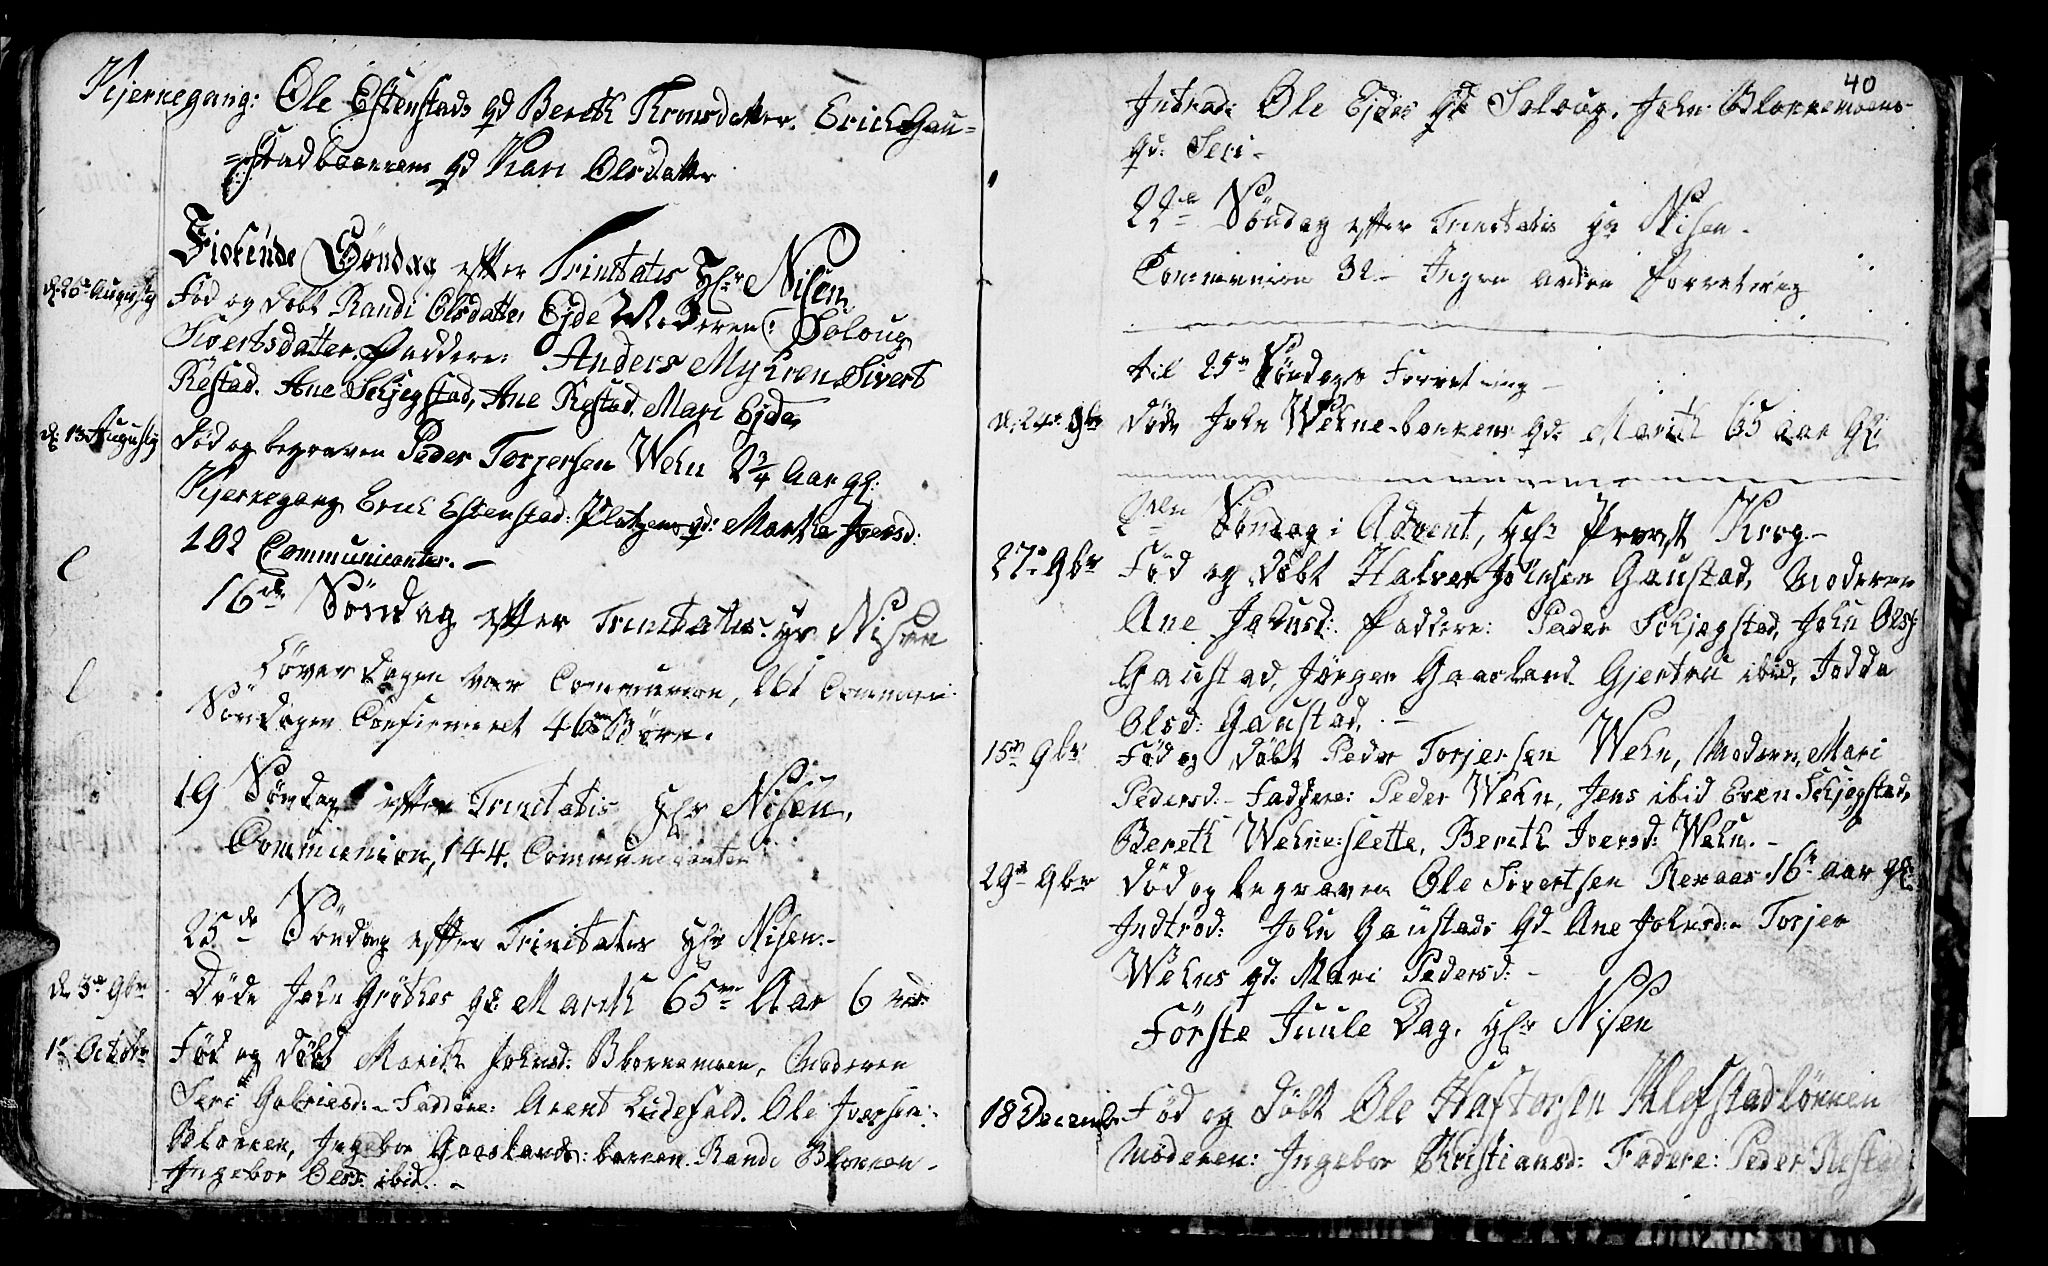 Kjerkegang: Ole Estenstads qd Bereth Tronsdatter. Erich Gau=
=stadbackens qd Kari Olsdatter
Tiofende Søndag effter Trinitatis Hr Nisen
d. 26 Augusty Fød og døbt Randi Olsdatter Ejde Moderen: Soloug
Sivertsdatter. Faddere: Anders Myhren, Sivert
Restad. Ane Schjegstad, Ane Restad, Mari Ejde
d. 13 Augusty Død og begraven Peder Torjersen Wehn 2 3/4 Aar gl:
Kjerkegang Erich Estenstad: Platzens qd: Marthe Iversd:
102 Communicanter. -
16de Søndag effter Trinitatis. Hr Nisen
Løverdagen var Communion, 261 Communi:
Søndagen Confirmeret 46 Børn.
19 Søndag effter Trinitatis Hr Nisen,
Communion, 144. Communicanter
25de Søndag effter Trinitatis Hr Nisen.-
d. 3de 9br Døde John Grøthes qd: Marith 65 Aar 6
1te Octobr Fød og døbt Marith Johnsd: Blokkemoen, Moderen
Seri Gabriesd: - Faddere: Arent Ludefald. Ole Iversen:
Blokken, Ingebor Gaaslands: backen. Randi Blokken-
Ingebor Olsd: ibid. -
40
Indtrad: Ole Ejdes qd Soloug. John Blokkemoens
qd: Seri -
22de Søndag effter Trinitatis Hr Nisen.
Communion 32 - Ingen anden Forretning
til 25de Søndags Forretning -
d. 24de 9br Døde John Wehne-backens qd: Marith 65 aar gl:
2den Søndag i Advent, Hr Provst Krog -
27de 9br Fød og døbt Halvor Johnsen Gaustad, Moderen
Ane Johnsd: Faddere: Peder Schjegstad, John Ols:
Gaustad, Jørgen Gaasland. Gjertru ibid, Jodda
Olsd: Gaustad. -
15de 9br Fød og døbt Peder Torjersen Wehn, Moderen, Mari
Pedersd: - Faddere: Peder Wehn, Jens ibid Even Schjegstad,
Bereth Wehne:slette, Bereth Iversd: Wehn. -
29de 9br Død og begraven Ole Sivertsen Rekaas 16 aar gl:
Indtrad: John Gaustads qd- Ane Johnsd: - Torjer
Wehns qd: Mari Pedersd: -
Første Juule Dag. Hr Nisen
18 Decemb. Fød og Døbt Ole Haftorsen Klefstadløkken
Moderen: Ingebor Kristiansd: Fadere: Peder Restad